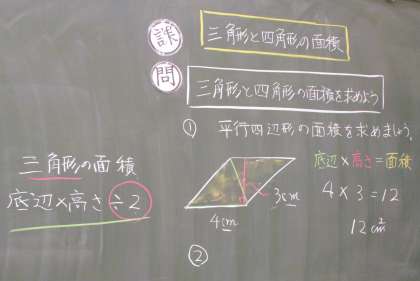 課 三角形と四角形の面積
問 三角形と四角形の面積を求めよう
① 平行四辺形の面積を求めましょう。
3cm
4cm
底辺×高さ=面積
4×3=12
12cm²
三角形の面積
底辺×高さ÷2
②